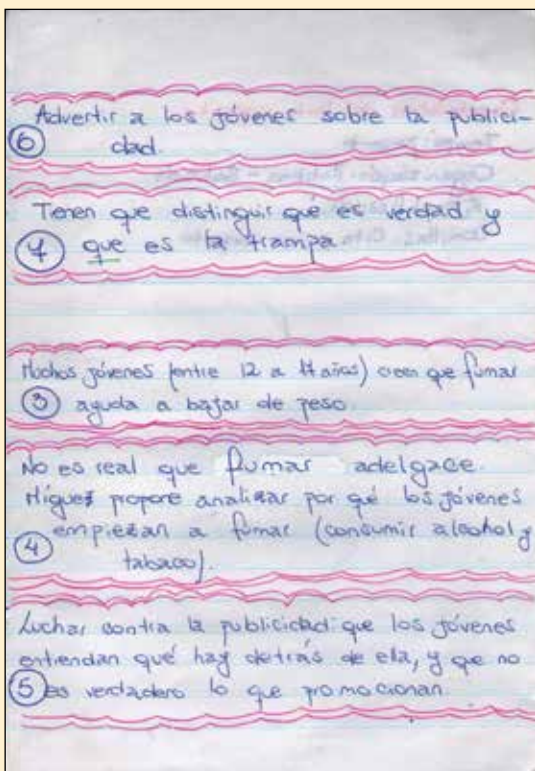 Advertir a los jóvenes sobre la publici-
6 dad.
Tenen que distinguir qué es verdad y
7 que es la trampa
Muchos jóvenes (entre 12 a 17 años) creen que fumar
3 ayuda a bajar de peso.
No es real que fumar adelgace.
Miguez propone analizar por qué los jóvenes
empiezan a fumar (consumir alcohol y
4 tabaco).
Luchar contra la publicidad: que los jóvenes
entiendan qué hay detrás de ella, y que no
5 es verdadero lo que promocionan.